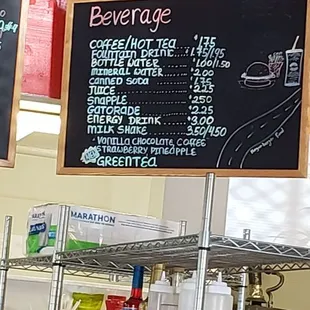 Beverage
COFFEE/HOT TEA $1.75
FOUNTAIN DRINK 1.75/95
BOTTLE WATER 1.00/1.50
MINERAL WATER $2.00
CANNED SODA $1.75
JUICE $2.25
SNAPPLE $2.50
GATORADE $2.25
ENERGY DRINK $3.00
MILK SHAKE 3.50/4.50
VANILLA CHOCOLATE, COFFEE
STRAWBERRY PINEAPPLE
GREENTEA
MARATHON